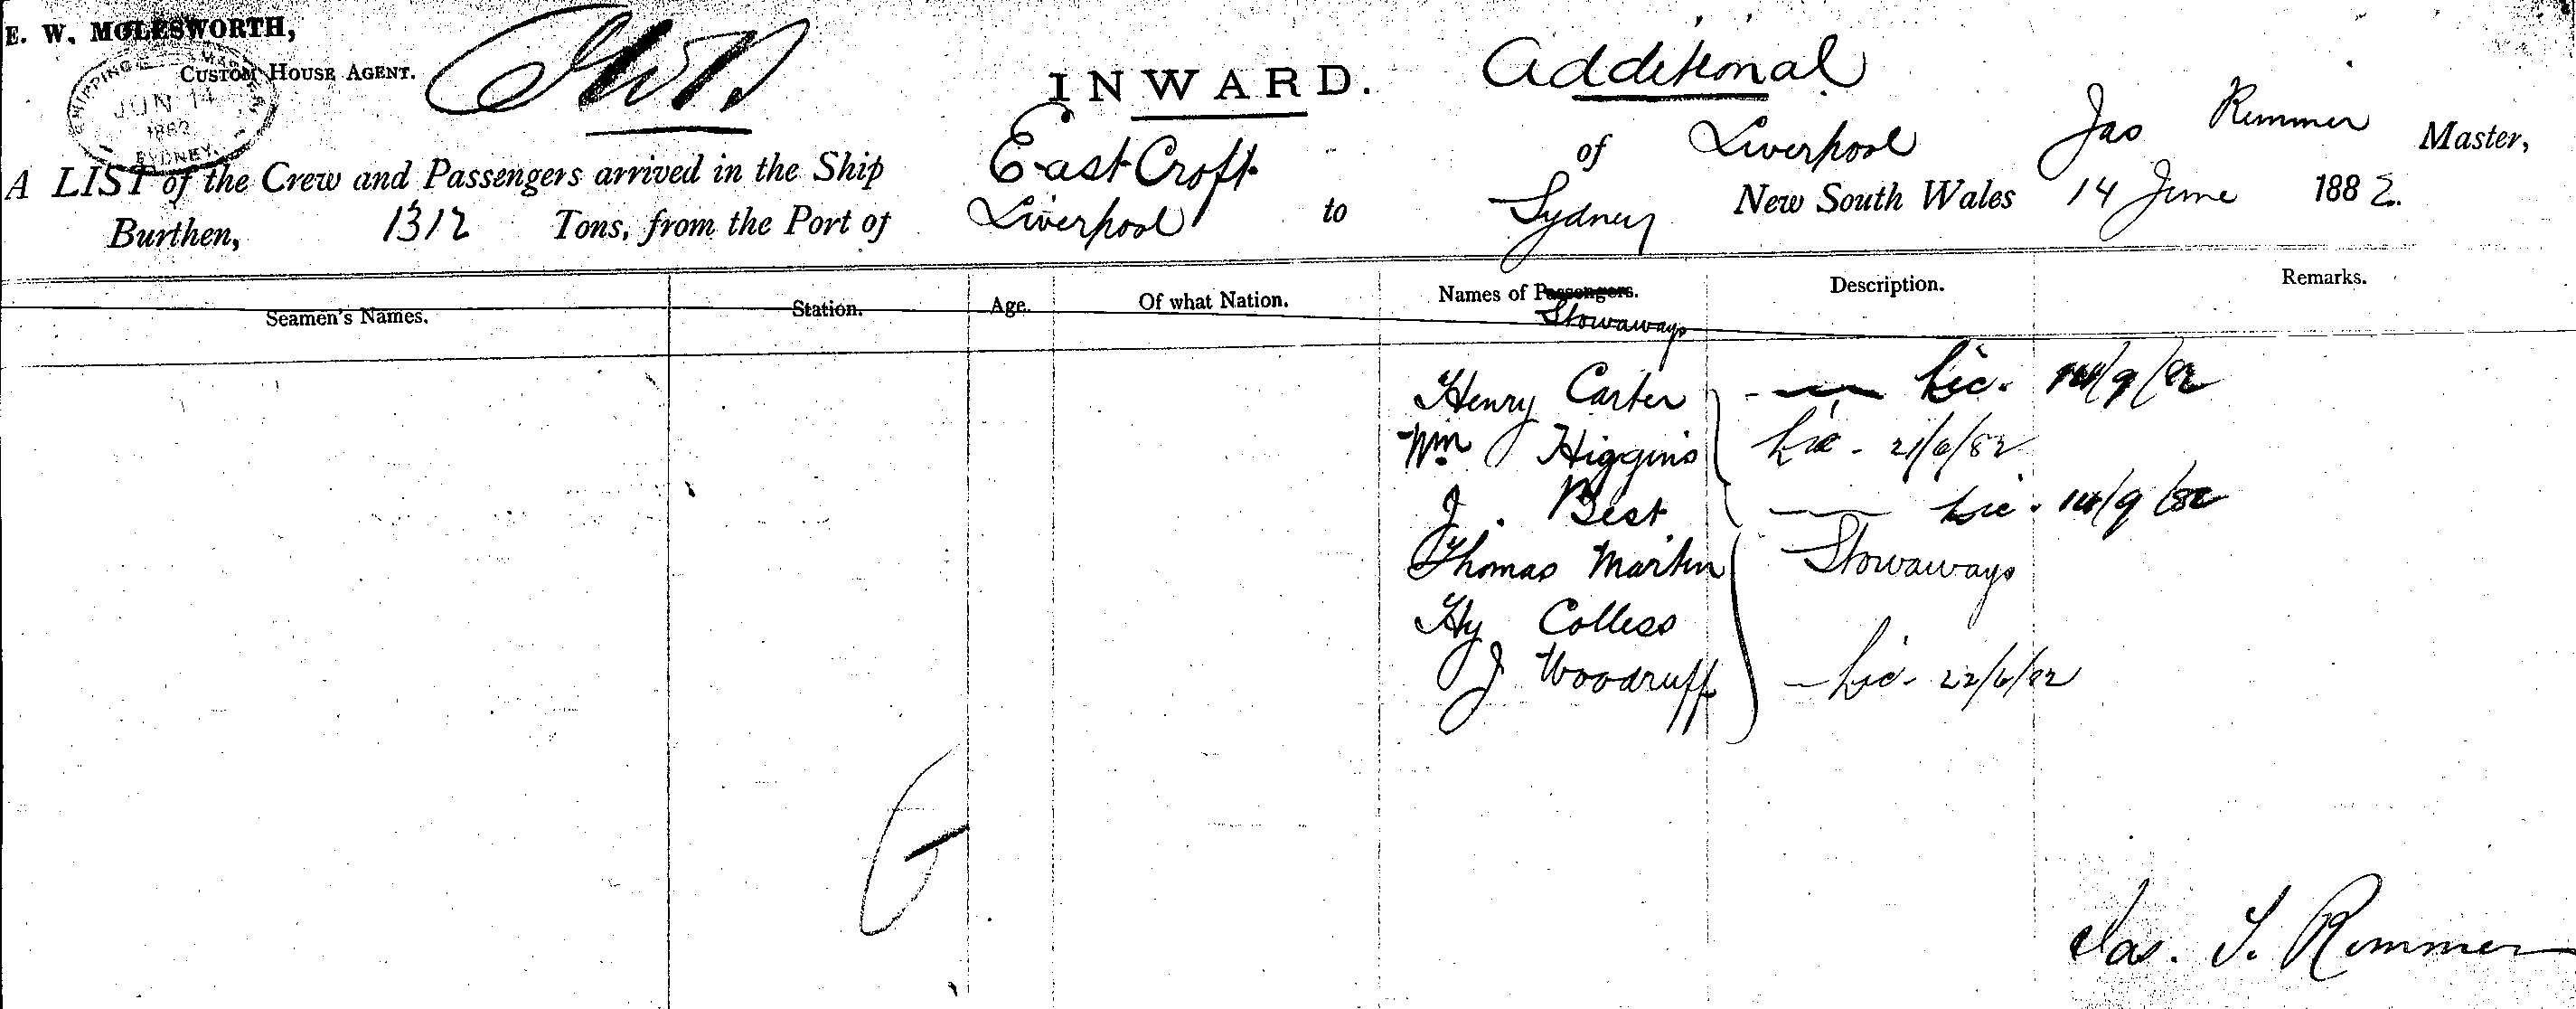 E. W. MOLESWORTH,
CUSTOM HOUSE AGENT.
SHIPPING MASTER
JUN 14
1882
SYDNEY.
INWARD. Additional
A LIST of the Crew and Passengers arrived in the Ship East Croft of Liverpool Jas Rimmer Master,
Burthen, 1312 Tons, from the Port of Liverpool to Sydney New South Wales 14 June 1882.
Seamen's Names. Station. Age. Of what Nation. Names of Passengers. Description. Remarks.
Stowaways
Henry Carter Lic. 14/9/82
Wm Higgins Lic. 21/6/82
J. Best Lic. 14/9/82
Thomas Martin Stowaways
Hy Colless
J Woodruff Lic. 22/6/82
Jas. T. Rimmer